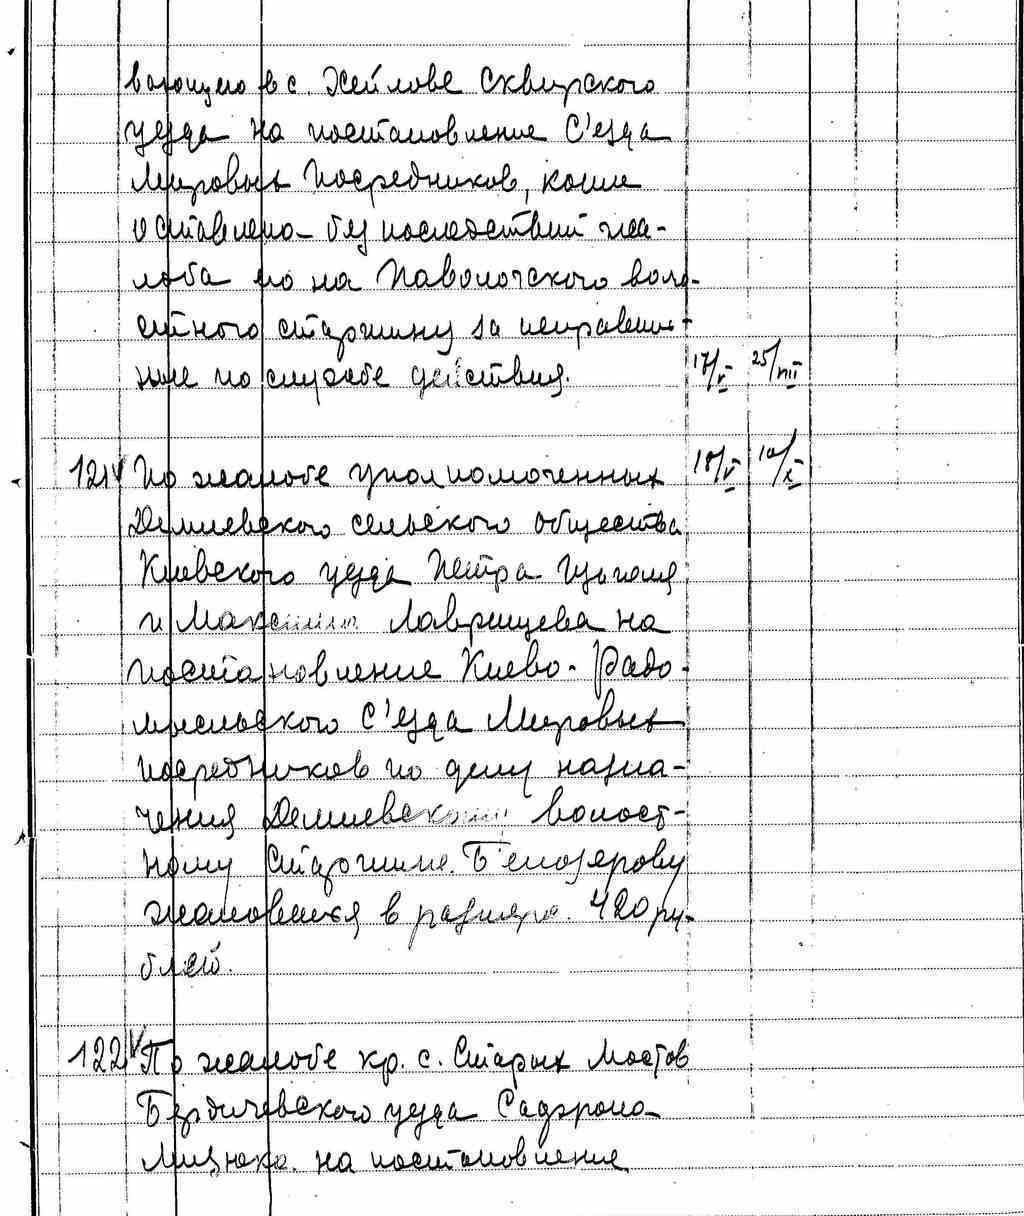 вающего в с. Хейлове Сквирского
уезда на постановление С'езда
Мировых Посредников, коим
оставлено без последствий жа-
лоба его на Паволочского воло-
стного старшину за неправиль-
ные по службе действия. 17/V 25/VIII
121 По жалобе уполномоченных 18/V 10/X
Демиевского сельского общества
Киевского уезда Петра
и Максима Лаврищева на
постановление Киево-Радо-
мысльского С'езда Мировых
Посредников по делу назна-
чения Демиевскому волост-
ному Старшине Белозерову
жалованья в размере 420 ру-
блей.
122 По жалобе кр. с. Старых Мостов
Бердичевского уезда
на постановление